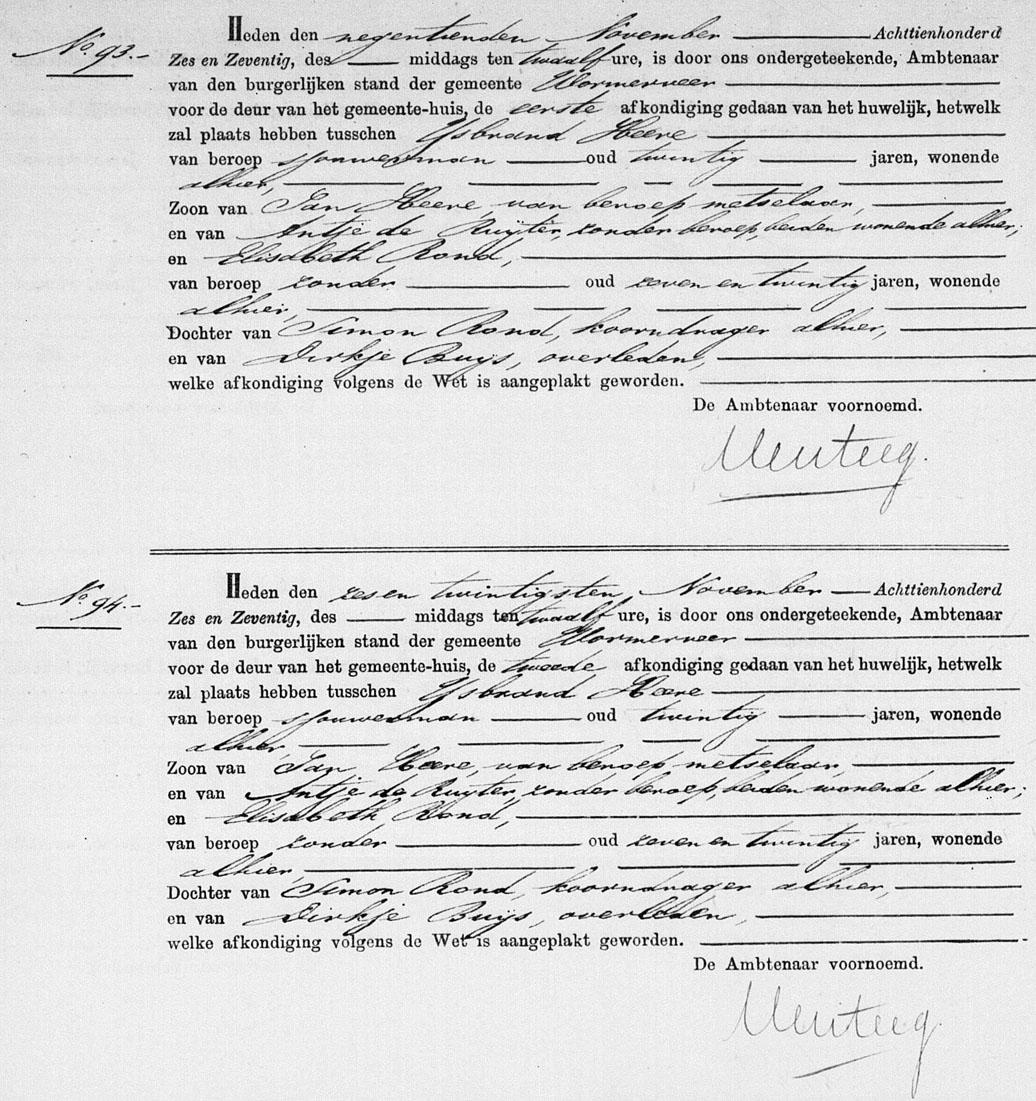 No. 93.-
Heden den negentienden November Achttienhonderd
Zes en Zeventig, des middags ten twaalf ure, is door ons ondergeteekende, Ambtenaar
van den burgerlijken stand der gemeente Wormerveer
voor de deur van het gemeente-huis, de eerste afkondiging gedaan van het huwelijk, hetwelk
zal plaats hebben tusschen IJsbrand Heere
van beroep sjouwerman oud twintig jaren, wonende
alhier,
Zoon van Jan Heere, van beroep metselaar,
en van Antje de Ruyter, zonder beroep, beiden wonende alhier;
en Elisabeth Rond,
van beroep zonder oud zeven en twintig jaren, wonende
alhier,
Dochter van Simon Rond, koorndrager alhier,
en van Dirkje Buys, overleden,
welke afkondiging volgens de Wet is aangeplakt geworden.
De Ambtenaar voornoemd.
No. 94.-
Heden den zes en twintigsten November Achttienhonderd
Zes en Zeventig, des middags ten twaalf ure, is door ons ondergeteekende, Ambtenaar
van den burgerlijken stand der gemeente Wormerveer
voor de deur van het gemeente-huis, de tweede afkondiging gedaan van het huwelijk, hetwelk
zal plaats hebben tusschen IJsbrand Heere
van beroep sjouwerman oud twintig jaren, wonende
alhier,
Zoon van Jan Heere, van beroep metselaar,
en van Antje de Ruyter, zonder beroep, beiden wonende alhier;
en Elisabeth Rond,
van beroep zonder oud zeven en twintig jaren, wonende
alhier,
Dochter van Simon Rond, koorndrager alhier,
en van Dirkje Buys, overleden,
welke afkondiging volgens de Wet is aangeplakt geworden.
De Ambtenaar voornoemd.